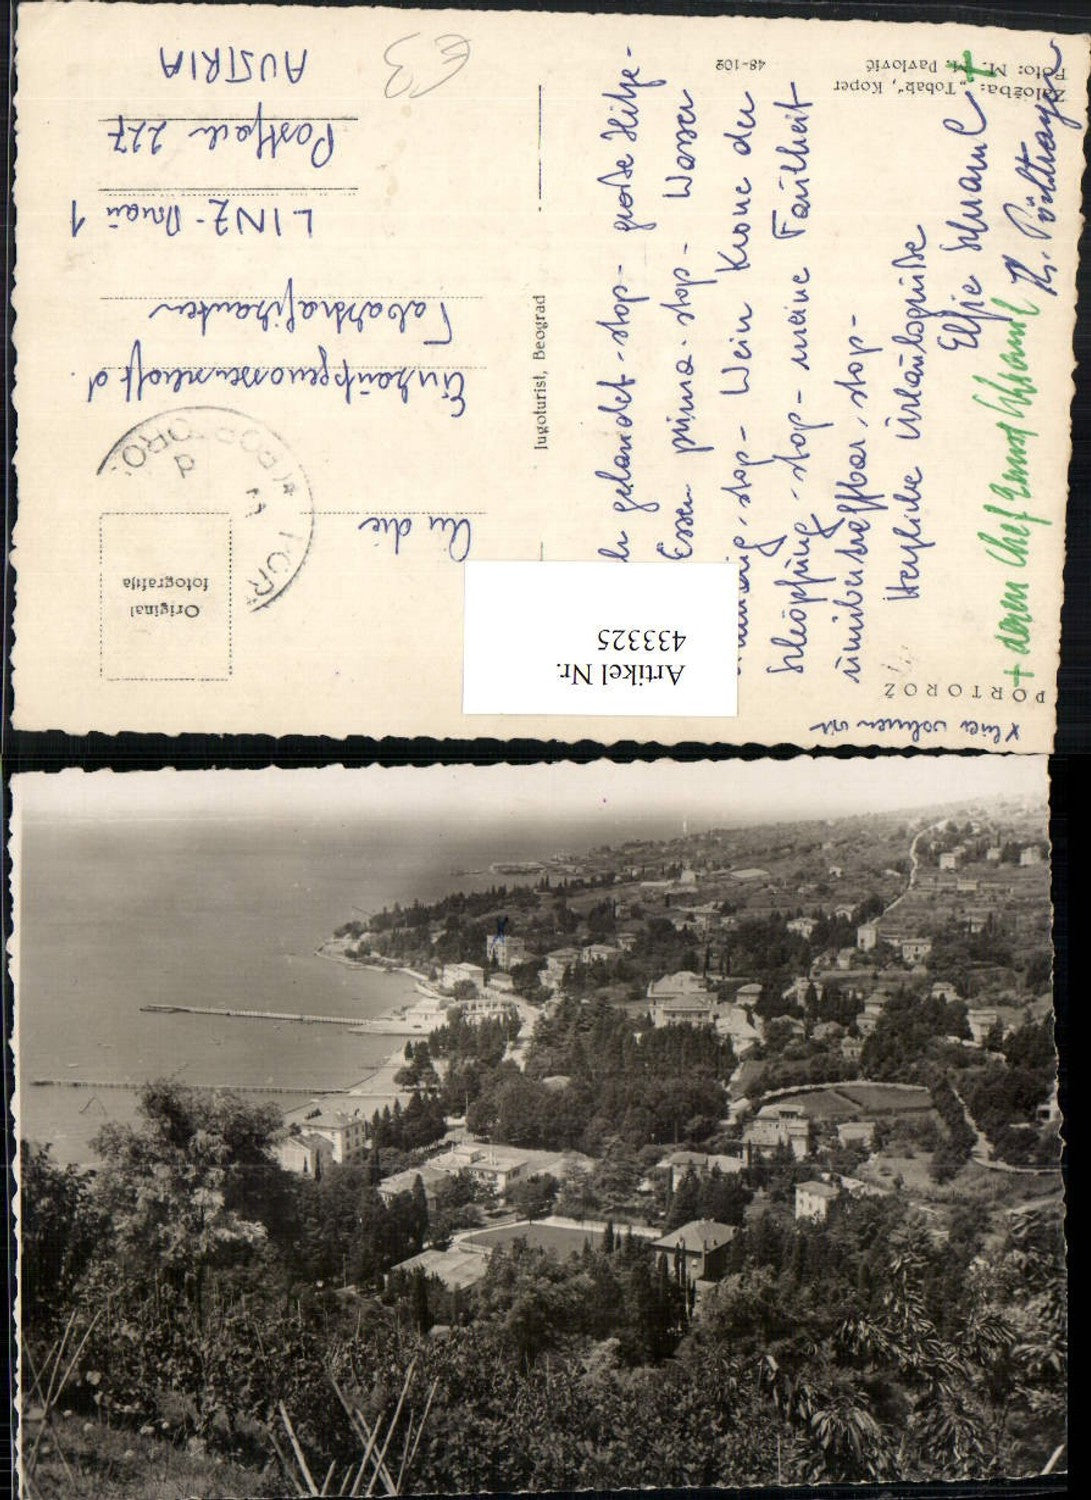 PORTOROŽ
x hier wohnen wir
gelandet - stop - große Hitze -
Essen prima - stop - Wasser
- stop - Wein Krone der
Schöpfung - stop - meine Faulheit
unübertreffbar, stop -
Herzliche Urlaubsgrüße
Elfje Schraml +
+ deren Chef Ernst Schraml
Založba: „Tobak", Koper
Foto: M. M. Pavlovič
48-102
Jugoturist, Beograd
Original
fotografija
An die
Einkaufsgenossenschaft d.
Tabaktrafikanten
LINZ-Donau 1
Postfach 227
AUSTRIA
€3
PORTOROŽ
Artikel Nr.
433325